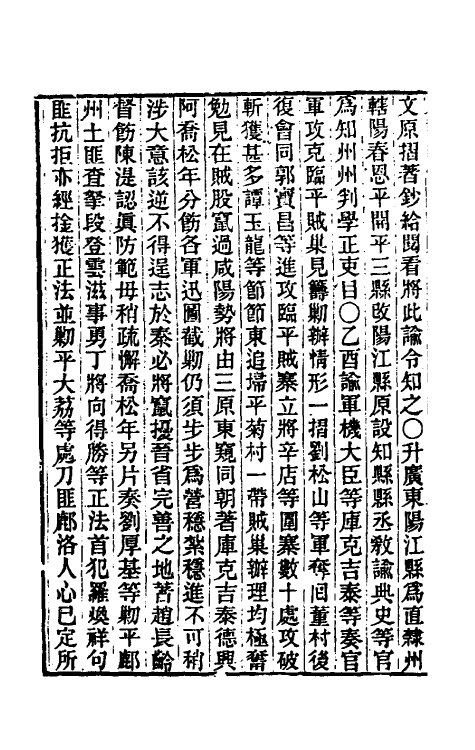 文原摺著鈔給閱看將此諭令知之○升廣東陽江縣為直隸州
轄陽春恩平開平三縣改陽江縣原設知縣縣丞教諭典史等官
為知州州判學正吏目○乙酉諭軍機大臣等庫克吉泰等奏官
軍攻克臨平賊巢見籌勦辦情形一摺劉松山等軍奪回董村後
復會同郭寶昌等進攻臨平賊寨立將辛店等圍寨數十處攻破
斬獲甚多譚玉龍等節節東追埽平菊村一帶賊巢辦理均極奮
勉見在賊股竄過咸陽勢將由三原東竄同朝著庫克吉泰德興
阿喬松年分飭各軍迅圖截勦仍須步步為營穩紮穩進不可稍
涉大意該逆不得逞志於秦必將竄擾晉省完善之地著趙長齡
督飭陳湜認眞防範毋稍疏懈喬松年另片奏劉厚基等勦平鄜
州土匪查拏段登雲滋事勇丁將向得勝等正法首犯羅煥祥句
匪抗拒亦經擒獲正法並勦平大荔等處刀匪鄜洛人心已定所